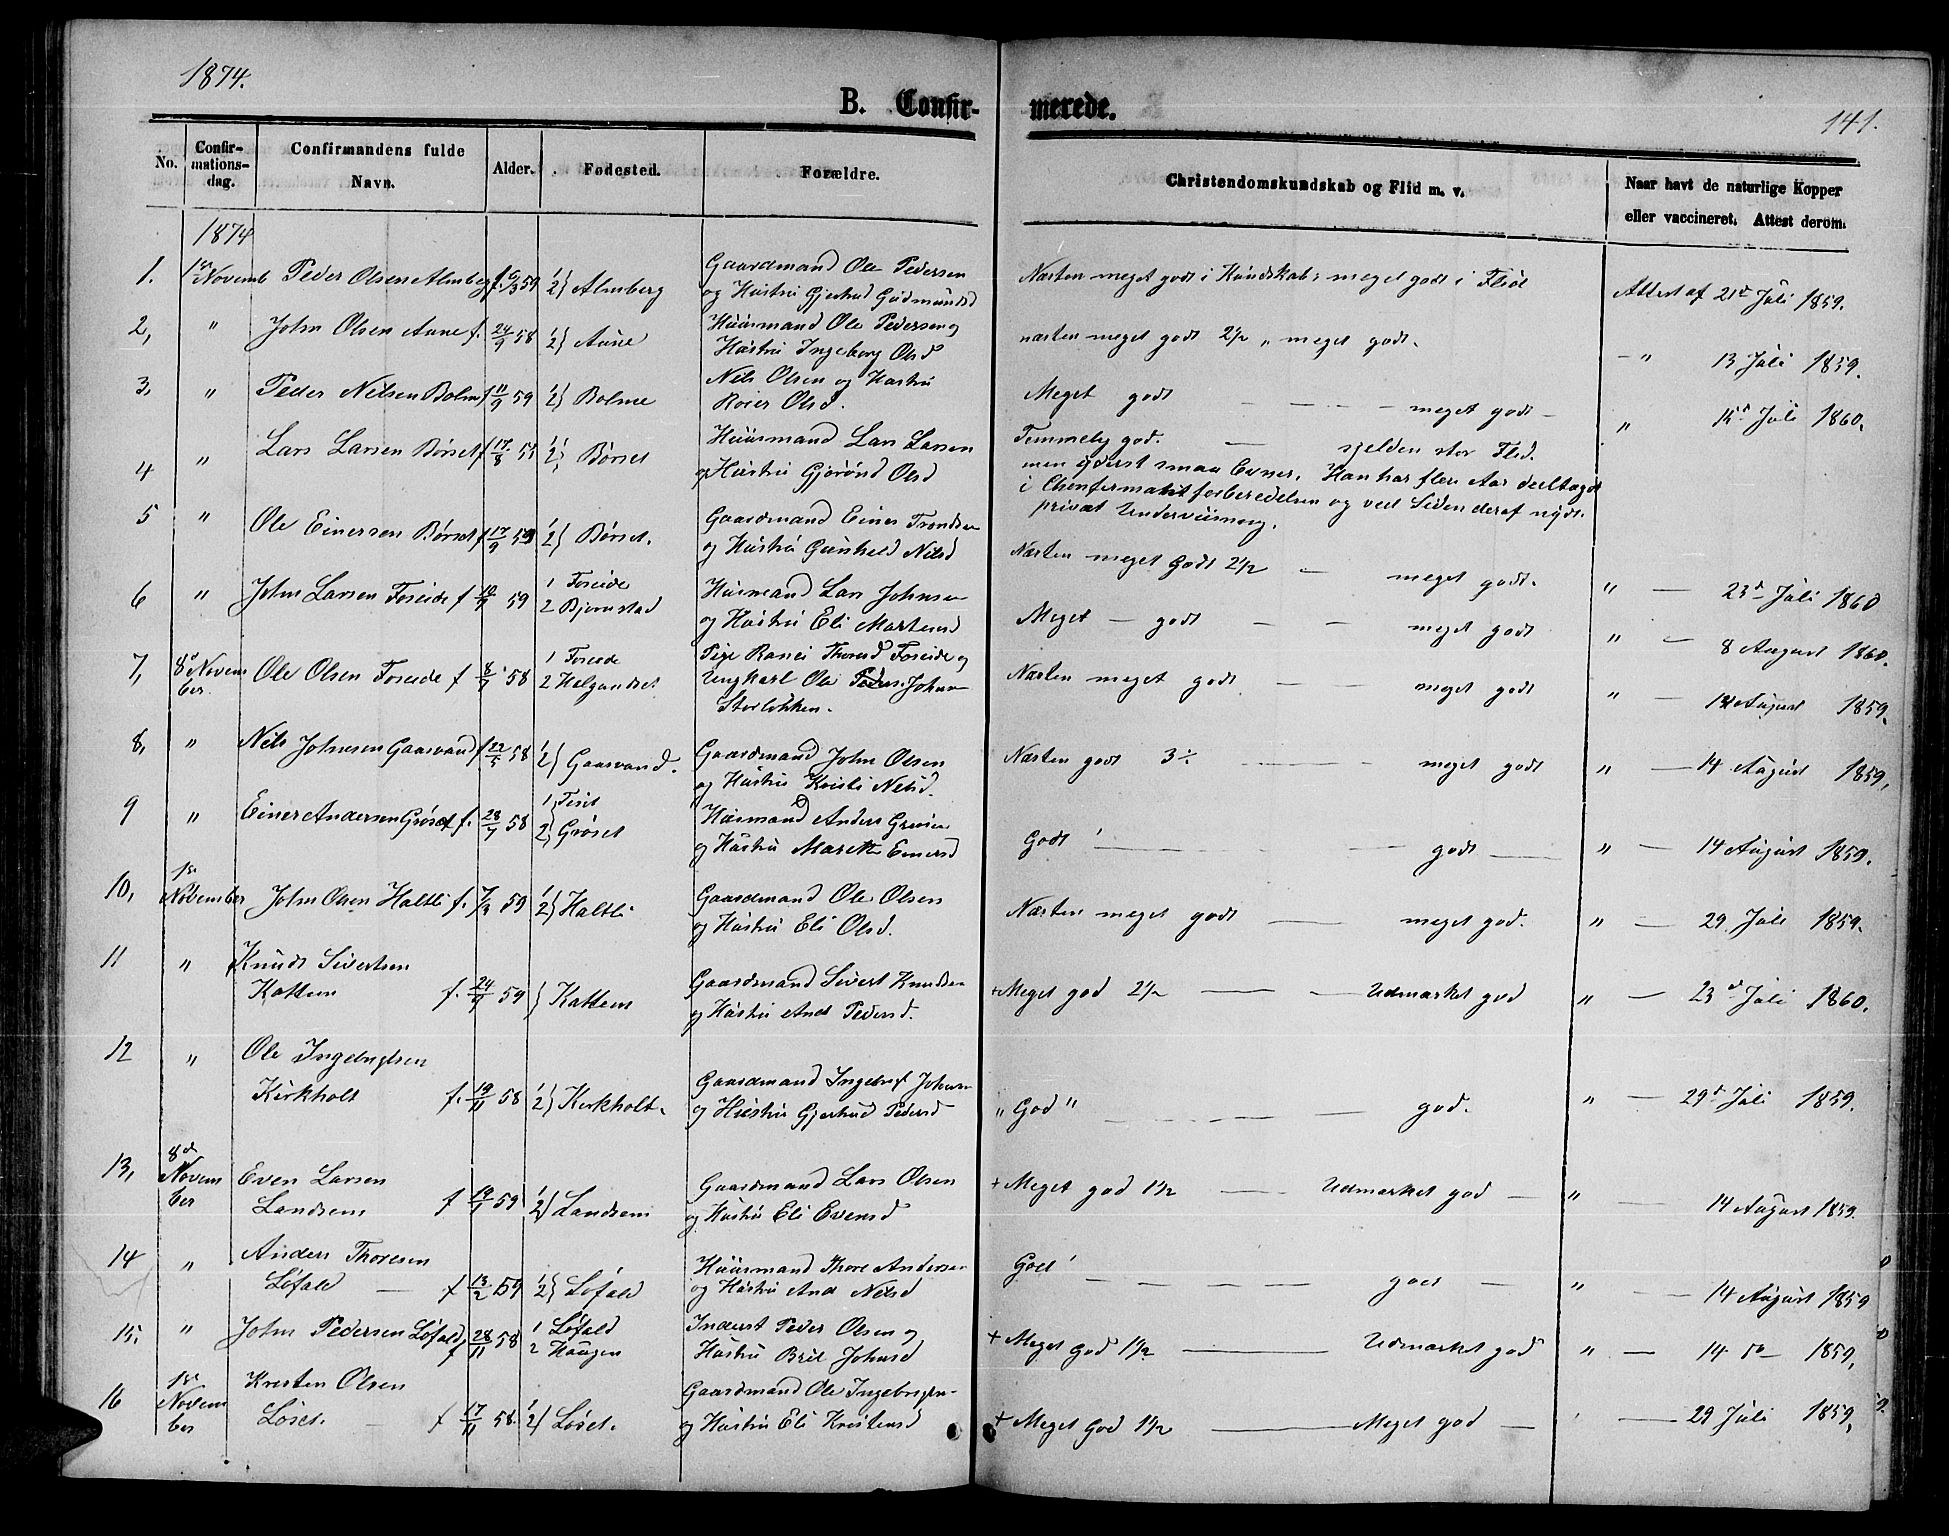 1874.
B. Confir-
merede.
141.
No.
Confir-
mations-
dag.
Confirmandens fulde
Navn.
Alder.
Fødested.
Forældre.
Christendomskundskab og Flid m. v.
Naar havt de naturlige Kopper
eller vaccineret. Attest derom.
1874
1. Novemb Peder Olsen Almberg f. 6/3 59 1/2} Almberg Gaardmand Ole Pedersen
og Hustru Gjertrud Gudmunsd
Næsten meget godt i Kundskab; meget godt i Flid Attest af 21d Juli 1859.
2, " John Olsen Aune f. 24/9 58 1/2} Aune Huusmand Ole Pedersen og
Hustru Ingeborg Olsd
næsten meget godt 2 1/2 " meget godt. — " 13 Juli 1859.
3, " Peder Nilsen Bolme f 11/9 59 1/2} Bolme Nils Olsen og Hustru
Roier Olsd.
Meget godt — — — meget godt — " 15d Juli 1860.
4 " Lars Larsen Børset f 17/8 Børset Huusmand Lars Larsen
og Hustru Gjørønd Olsd
Temmelig god. — sjelden stor Flid.
men yderst smaa Evner. Han har flere Aar deeltaget
i Chonfermatsforberedelsen og ved Siden deraf nydt
privat Underviisning.
5 " Ole Einersen Børset f 17/9 59 1/2} Børset. Gaardmand Einer Trondsen
og Hustru Gunhild Nilsd
Næsten meget godt 2 1/2 — meget godt. " — 23d Juli 1860
6 " John Larsen Foseide f 59 1 Foseide
2 Bjørnstad
Huusmand Lars Johnsen
og Hustru Eli Mortensd
Meget — godt — — meget godt " — 8 August 1860.
7, 8d Novem
ber. Ole Olsen Foseide f 8/7 58 1 Foseide
2 Helgandset
Pige Ranei Thoresd Foseide og
Ungkarl Ole Peders. Johnsen
Storløkken.
Næsten meget godt — — meget godt " — 14 August 1859.
8, " Nils Johnsen Gaasvand f 22/5 58 1/2} Gaasvand. Gaardmand John Olsen
og Hustru Kristi Nilsd.
Næsten godt 3÷ — — meget godt " — 14 August 1859.
9 " Einer Andersen Grøset f. 28/7 58 1}
2} Grøset
Huusmand Anders
og Hustru Marit Einersd
Godt — — godt — " — 14 August 1859.
10, November John Olsen Haltli f. 7/3 59 1/2} Haltli Gaardmand Ole Olsen
og Hustru Eli Olsd.
Næsten meget godt — meget god. " — 29 Juli 1859.
11 " Knudt Sivertsen
Kattem f. 24/9 59 } Kattem Gaardmand Sivert Knudsen
og Hustru And Pedersd.
+ Meget god 2 1/2 — — Udmærket god " — 23d Juli 1860.
12 " Ole Ingebrigtsen
Kirkholt f. 19/11 58 1/2} Kirkholt. Gaardmand Ingebrigt Johnsen
og Hustru Gjertrud Pedersd
" God " — — god. " — 29d Juli 1859.
13, 8d
Novem
ber Even Larsen
Landsem f 59 1/2} Landsem Gaardmand Lars Olsen
og Hustru Eli Evensd
+ Meget god 1 1/2 — Udmærket god — " — 14 August 1859.
14 " Anders Thoresen
Løfald — f 13/2 59 1/2} Løfald Huusmand Thore Andersen
og Hustru And Nilsd
God — — god — " — 14 August 1859
15, " John Pedersen Løfald f 28/11 58 1 Løfald
2 Haugen
Inderst Peder Olsen og
Hustru Brit Johnsd
+ Meget god 1 1/2 — Udmærket god " — 14 do 1859,
16 Novem
ber Kristen Olsen
Løset. — f 17/11 58. 1/2} Løset. Gaardmand Ole Ingebrigtsen
og Hustru Eli Kristensd
+ Meget God 1 1/2 — Meget god — 29 Juli 1859,